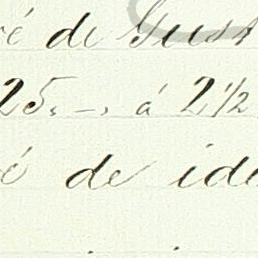 é de Gust
25. –. á 2 1/2
é de ide